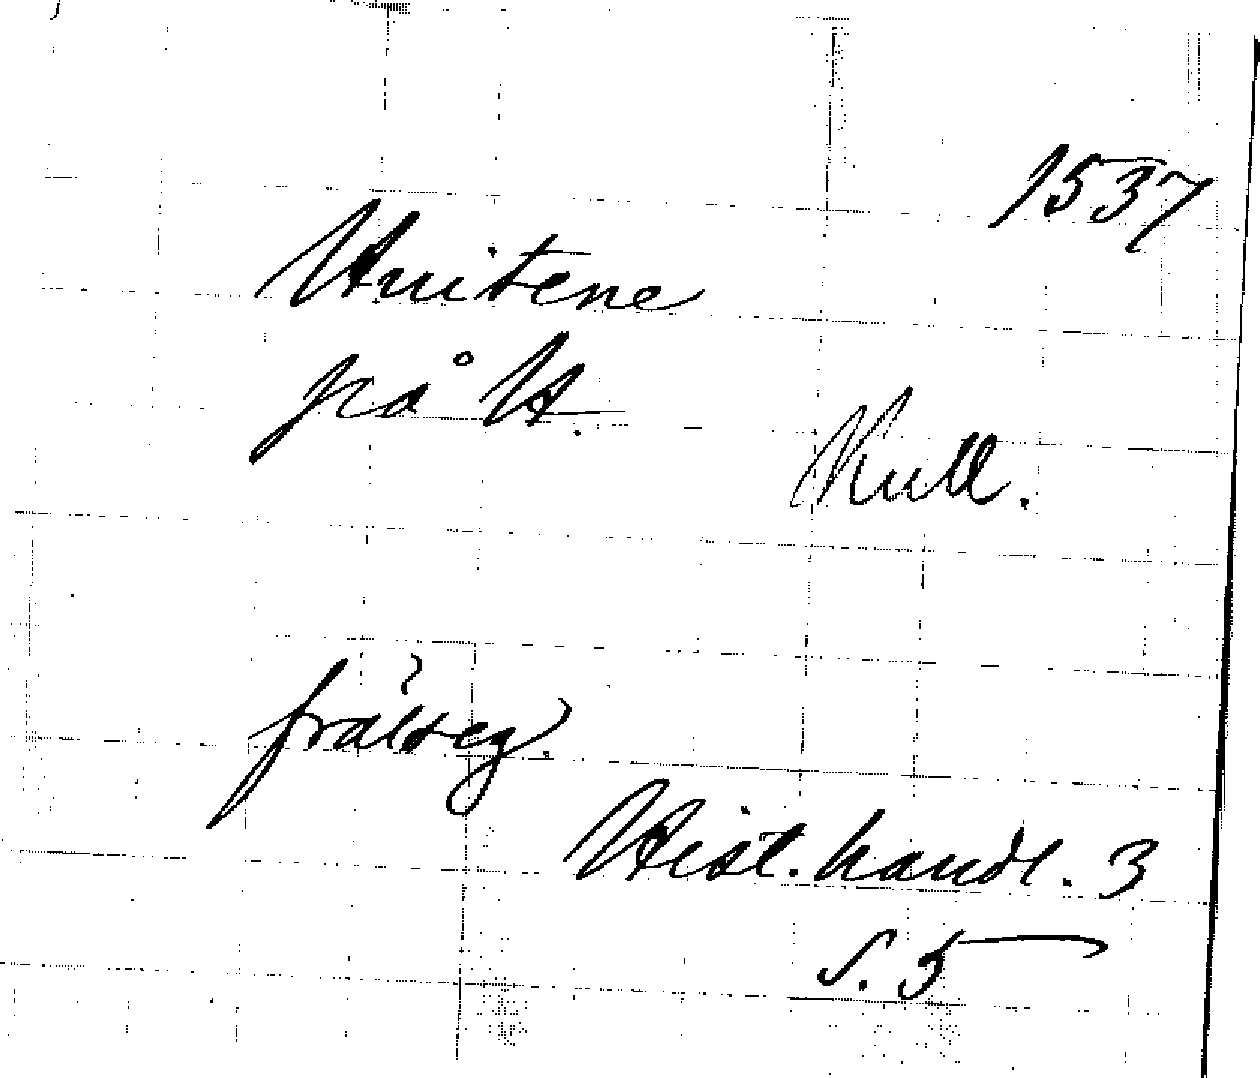 1537
Huitene
på H.
Kull.
frälseg.
Hist. handl. 3
s. 5